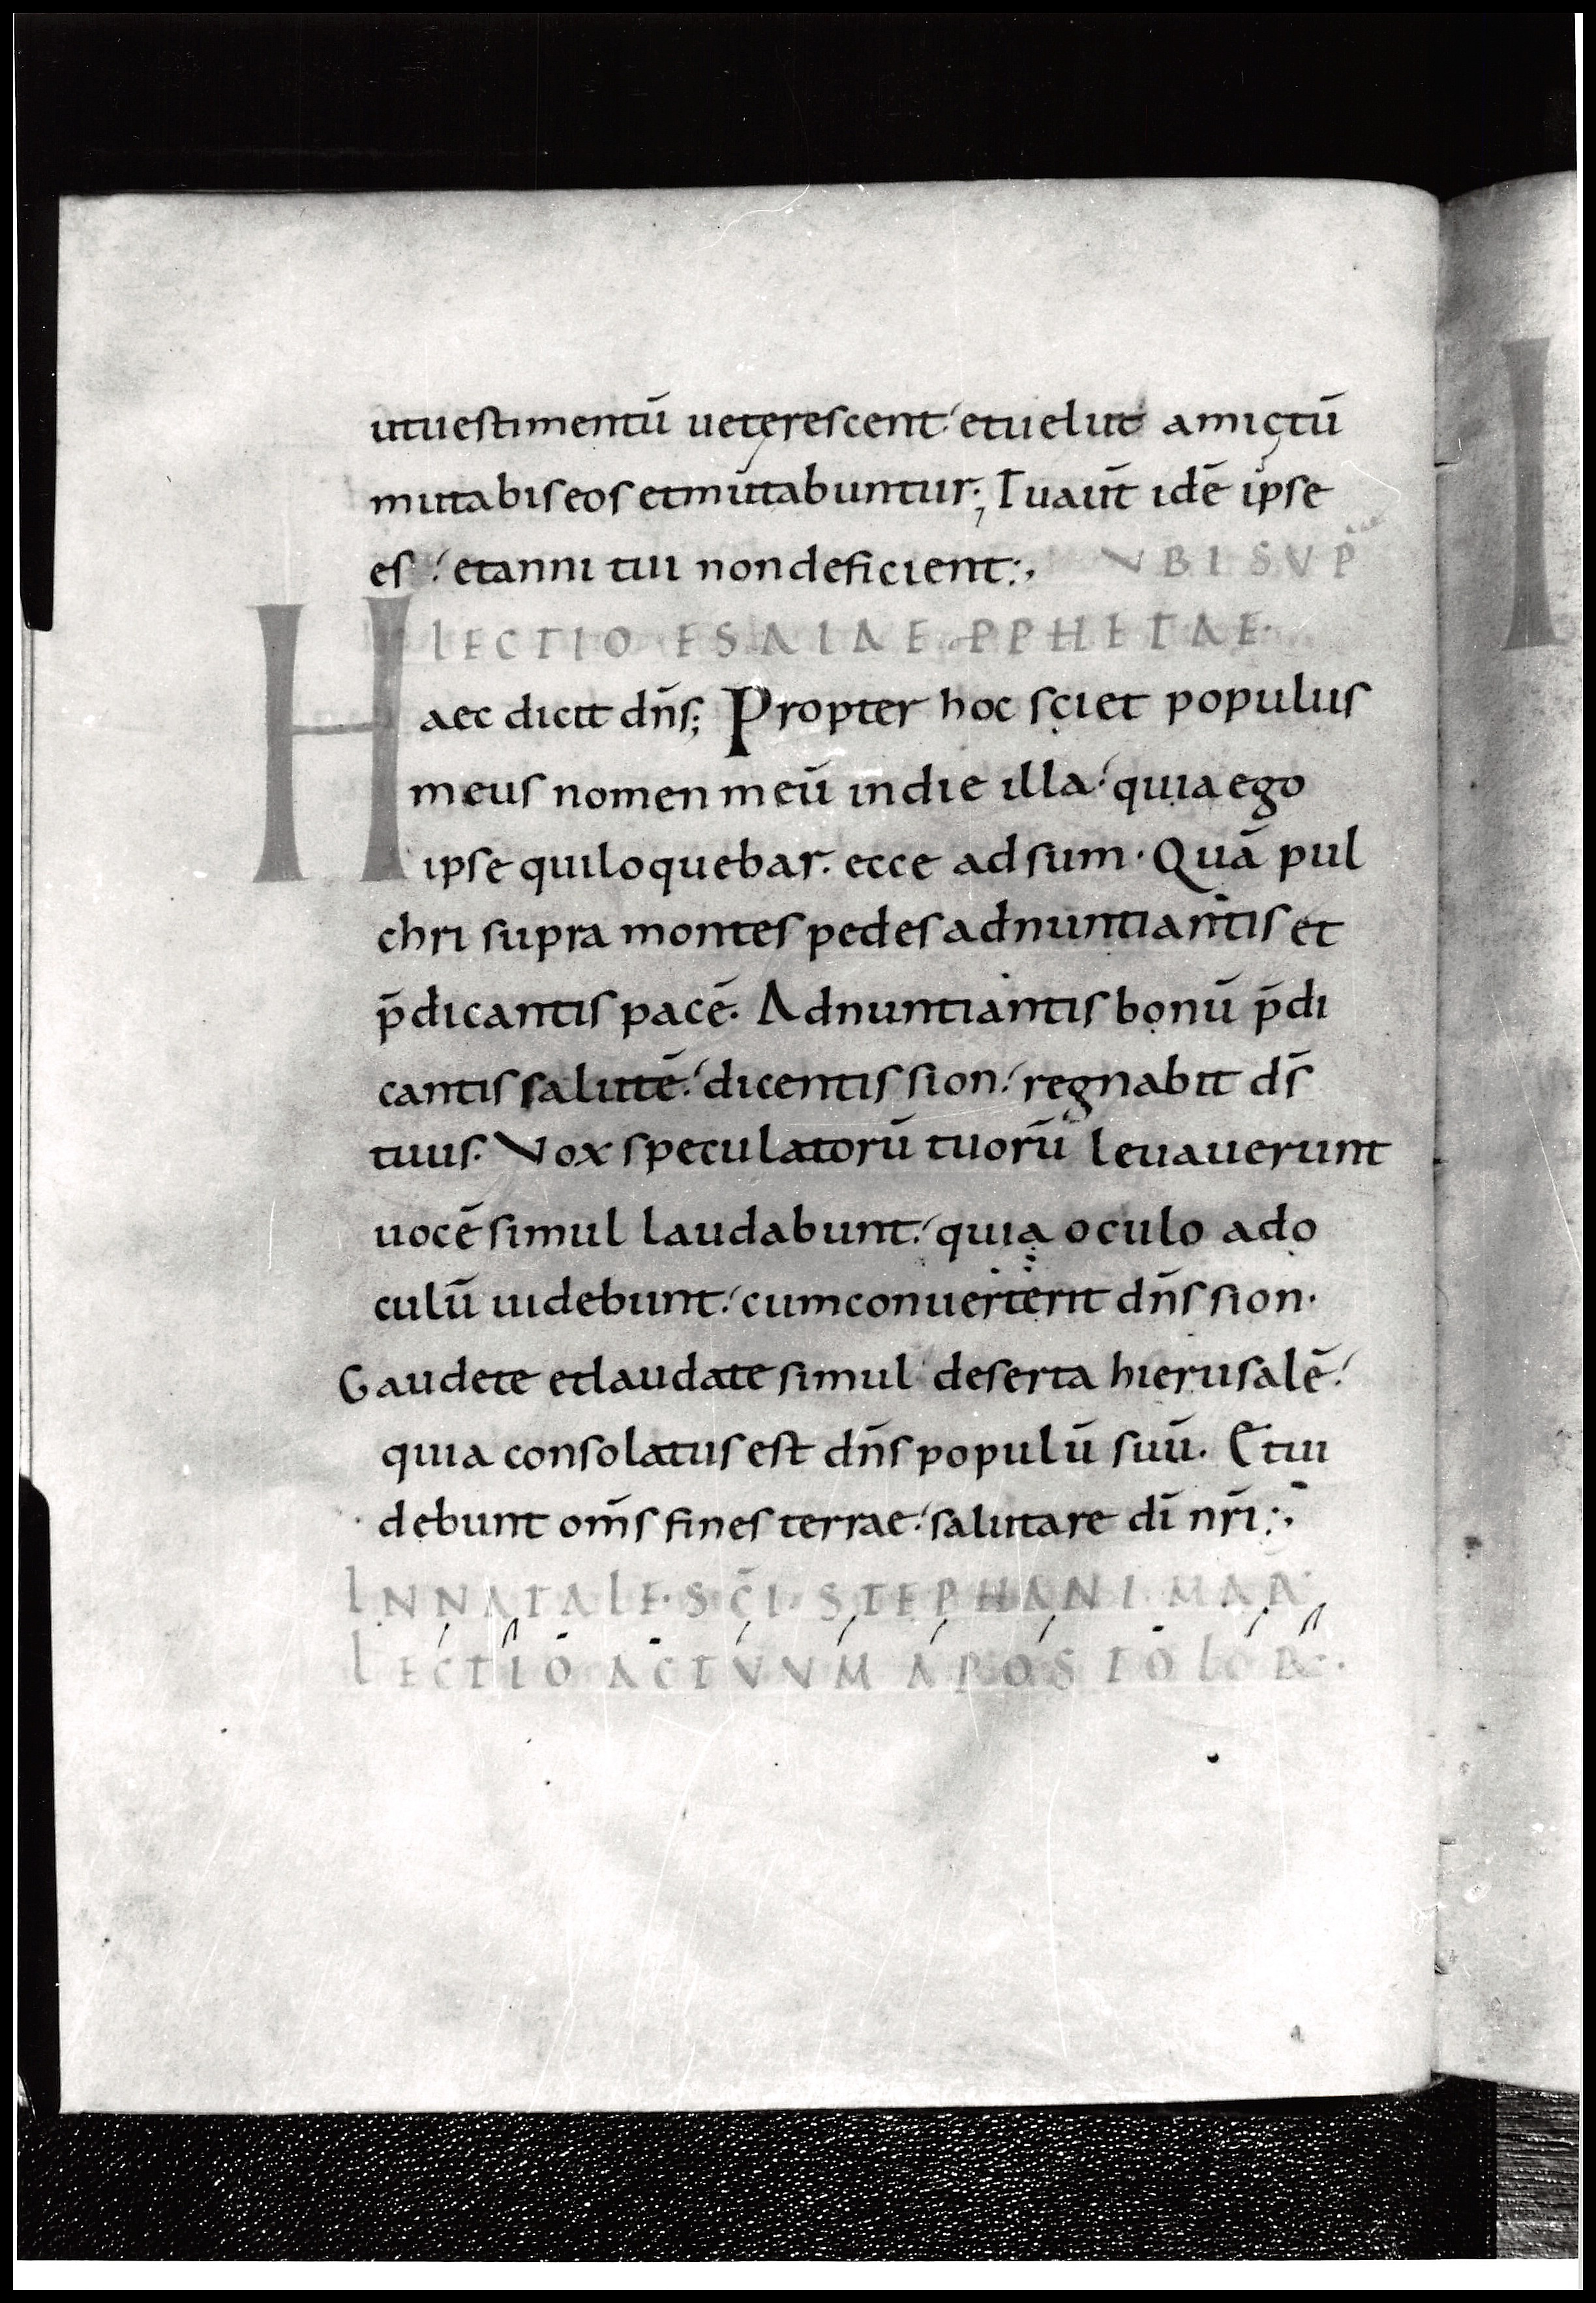 utuestimentū ueterescent et uelut amictū
mutabis eos etmutabuntur; Tu aūt idē ipse
es et anni tui non deficient:, VBI SVP̄
LECTIO ESAIAE PPHETAE·
Haec dicit dn̄s; Propter hoc sciet populus
meus nomen meū in die illa quia ego
ipse qui loquebar. ecce adsum· Quā pul
chri supra montes pedes adnuntiantis et
p̄dicantis pacē. Adnuntiantis bonū p̄di
cantis salutē dicentis sion regnabit ds̄
tuus. Vox speculatorū tuorū leuauerunt
uocē simul laudabunt quia oculo ado
culū uidebunt cum conuerterit dn̄s sion·
Gaudete et laudate simul deserta hierusalē
quia consolatus est dn̄s populū suū. Et ui
debunt om̄s fines terrae salutare dī nr̄i:,
IN NATALE· SC̄I· STEPHANI MAR̄·
LECTIO ACTVVM APOSTOLOR·